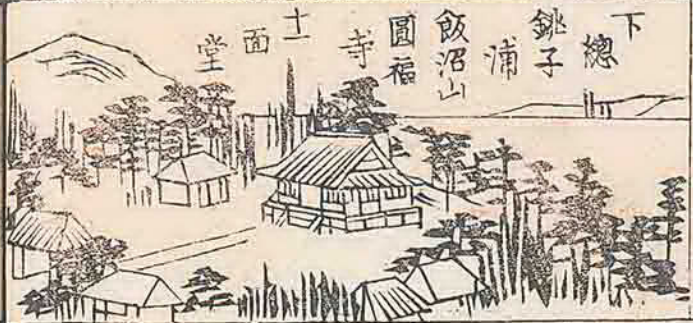 下總
銚子
浦
飯沼山
圓福
寺
十一
面
堂